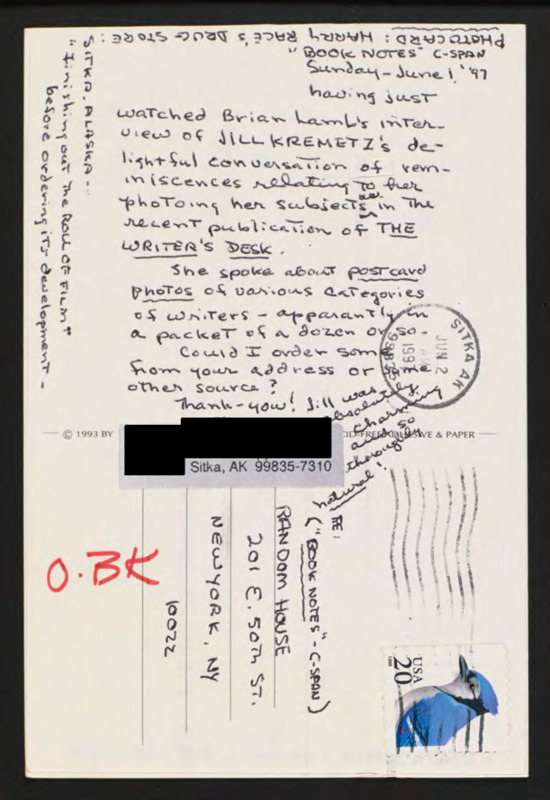 PHOTOCARD: HARRY RACE'S DRUG STORE:
SITKA, ALASKA -
"Finishing out the ROLL OF FILM"
before ordering its development -
"BOOK NOTES" C-SPAN
Sunday - June 1, '97
having just
watched Brian Lamb's inter-
view of JILL KREMETZ'S de-
lightful conversation of rem-
iniscences relating to her
photoing her subjects in the
recent publication of THE
WRITER'S DESK.
She spoke about postcard
photos of various categories
of writers - apparantly in
a packet of a dozen or so -
Could I order some
from your address or some
other source?
Thank-you! Jill was
absolutely
charming
and so
thoroughly
natural!
SITKA AK
JUN 2
AM
1997
99835
© 1993 BY
CID-FREE ADHESIVE & PAPER
Sitka, AK 99835-7310
RE:
("BOOK NOTES" - C-SPAN)
RANDOM HOUSE
201 E. 50TH ST.
NEW YORK, NY
10022
O.BK
USA
20